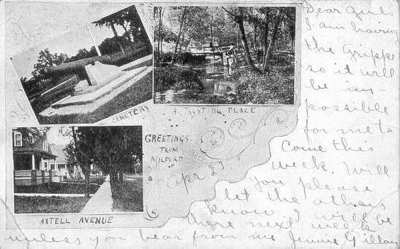 CEMETERY
PLACE
GREETINGS
FROM
MILFORD
AXTELL AVENUE
Dear
I am having
the Grippe
so it will
be im-
possible
for me to
Come this
week. Will
you please
let the
know I will be
next week
unless you hear from me.